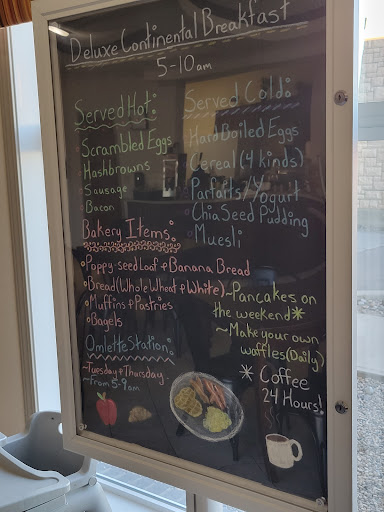 Deluxe Continental Breakfast
5-10am
Served Hot:
Scrambled Eggs
Hashbrowns
Sausage
Bacon
Served Cold:
Hard Boiled Eggs
Cereal (4 kinds)
Parfaits/Yogurt
Chia Seed Pudding
Muesli
Bakery Items:
Poppy seed Loaf & Banana Bread
Bread (Whole Wheat & White)
Muffins & Pastries
Bagels
Omlette Station:
~Tuesday & Thursday
~From 5-9am
~Pancakes on
the weekend*
~Make your own
waffles (Daily)
* Coffee
24 Hours!